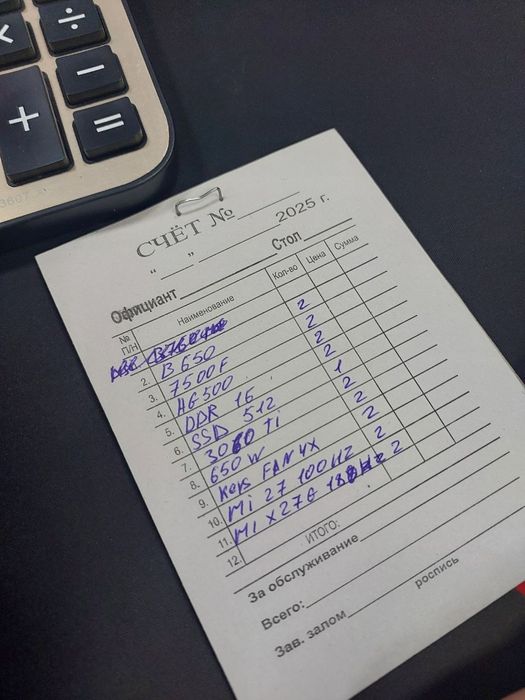 × ÷
−
+ =
СЧЁТ № 2025 г.
“ ”
Официант Стол
№ П/Н Наименование Кол-во Цена Сумма
2. B650 2
3. 7500F 2
4. HG500 2
5. DDR 16 2
6. SSD 512 1
7. 3060 Ti 2
8. 650 W 2
9. Keys FAN 4X 2
10. Mi 27 100HZ 2
11. Mi X27G 2
12.
ИТОГО:
За обслуживание
Всего:
Зав. залом роспись